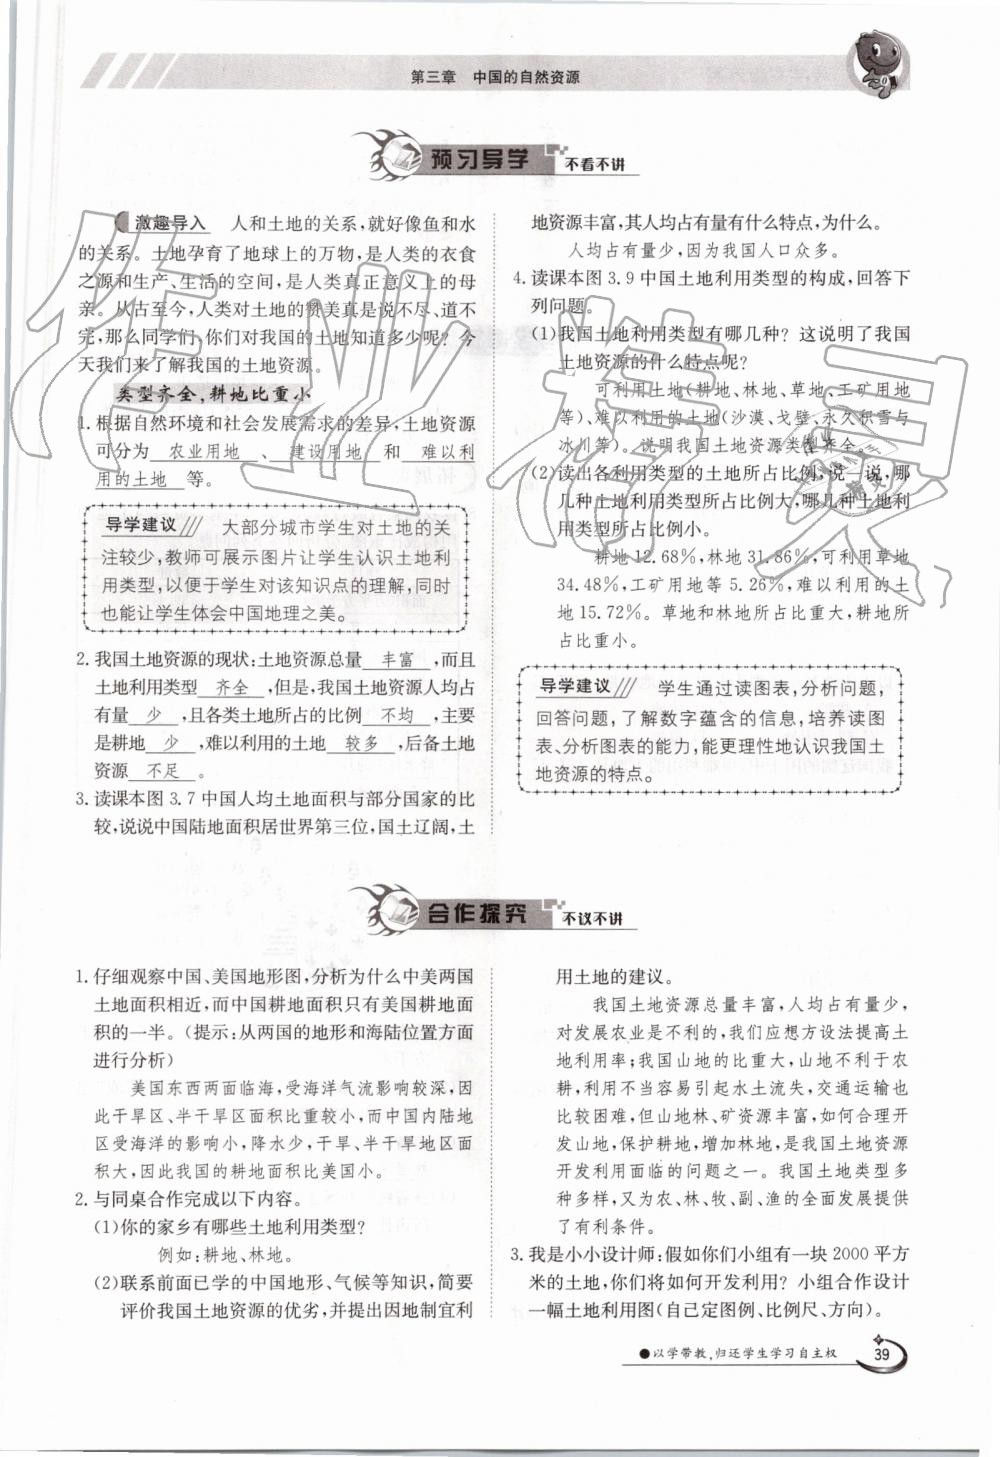 第三章 中国的自然资源
预习导学 不看不讲
激趣导入 人和土地的关系,就好像鱼和水
的关系。土地孕育了地球上的万物,是人类的衣食
之源和生产、生活的空间,是人类真正意义上的母
亲。从古至今,人类对土地的赞美真是说不尽、道不
完,那么同学们,你们对我国的土地知道多少呢?今
天我们来了解我国的土地资源。
类型齐全,耕地比重小
1.根据自然环境和社会发展需求的差异,土地资源
可分为 农业用地 、 建设用地 和 难以利
用的土地 等。
导学建议 大部分城市学生对土地的关
注较少,教师可展示图片让学生认识土地利
用类型,以便于学生对该知识点的理解,同时
也能让学生体会中国地理之美。
2.我国土地资源的现状:土地资源总量 丰富 ,而且
土地利用类型 齐全 ,但是,我国土地资源人均占
有量 少 ,且各类土地所占的比例 不均 ,主要
是耕地 少 ,难以利用的土地 较多 ,后备土地
资源 不足 。
3.读课本图3.7中国人均土地面积与部分国家的比
较,说说中国陆地面积居世界第三位,国土辽阔,土
地资源丰富,其人均占有量有什么特点,为什么。
人均占有量少,因为我国人口众多。
4.读课本图3.9中国土地利用类型的构成,回答下
列问题。
(1)我国土地利用类型有哪几种?这说明了我国
土地资源的什么特点呢?
可利用土地(耕地、林地、草地、工矿用地
等)、难以利用的土地(沙漠、戈壁、永久积雪与
冰川等)。说明我国土地资源类型齐全。
(2)读出各利用类型的土地所占比例,说一说,哪
几种土地利用类型所占比例大,哪几种土地利
用类型所占比例小。
耕地12.68%,林地31.86%,可利用草地
34.48%,工矿用地等5.26%,难以利用的土
地15.72%。草地和林地所占比重大,耕地所
占比重小。
导学建议 学生通过读图表,分析问题,
回答问题,了解数字蕴含的信息,培养读图
表、分析图表的能力,能更理性地认识我国土
地资源的特点。
合作探究 不议不讲
1.仔细观察中国、美国地形图,分析为什么中美两国
土地面积相近,而中国耕地面积只有美国耕地面
积的一半。(提示:从两国的地形和海陆位置方面
进行分析)
美国东西两面临海,受海洋气流影响较深,因
此干旱区、半干旱区面积比重较小,而中国内陆地
区受海洋的影响小,降水少,干旱、半干旱地区面
积大,因此我国的耕地面积比美国小。
2.与同桌合作完成以下内容。
(1)你的家乡有哪些土地利用类型?
例如:耕地、林地。
(2)联系前面已学的中国地形、气候等知识,简要
评价我国土地资源的优劣,并提出因地制宜利
用土地的建议。
我国土地资源总量丰富,人均占有量少,
对发展农业是不利的,我们应想方设法提高土
地利用率;我国山地的比重大,山地不利于农
耕,利用不当容易引起水土流失,交通运输也
比较困难,但山地林、矿资源丰富,如何合理开
发山地,保护耕地,增加林地,是我国土地资源
开发利用面临的问题之一。我国土地类型多
种多样,又为农、林、牧、副、渔的全面发展提供
了有利条件。
3.我是小小设计师:假如你们小组有一块2000平方
米的土地,你们将如何开发利用?小组合作设计
一幅土地利用图(自己定图例、比例尺、方向)。
●以学带教,归还学生学习自主权
39